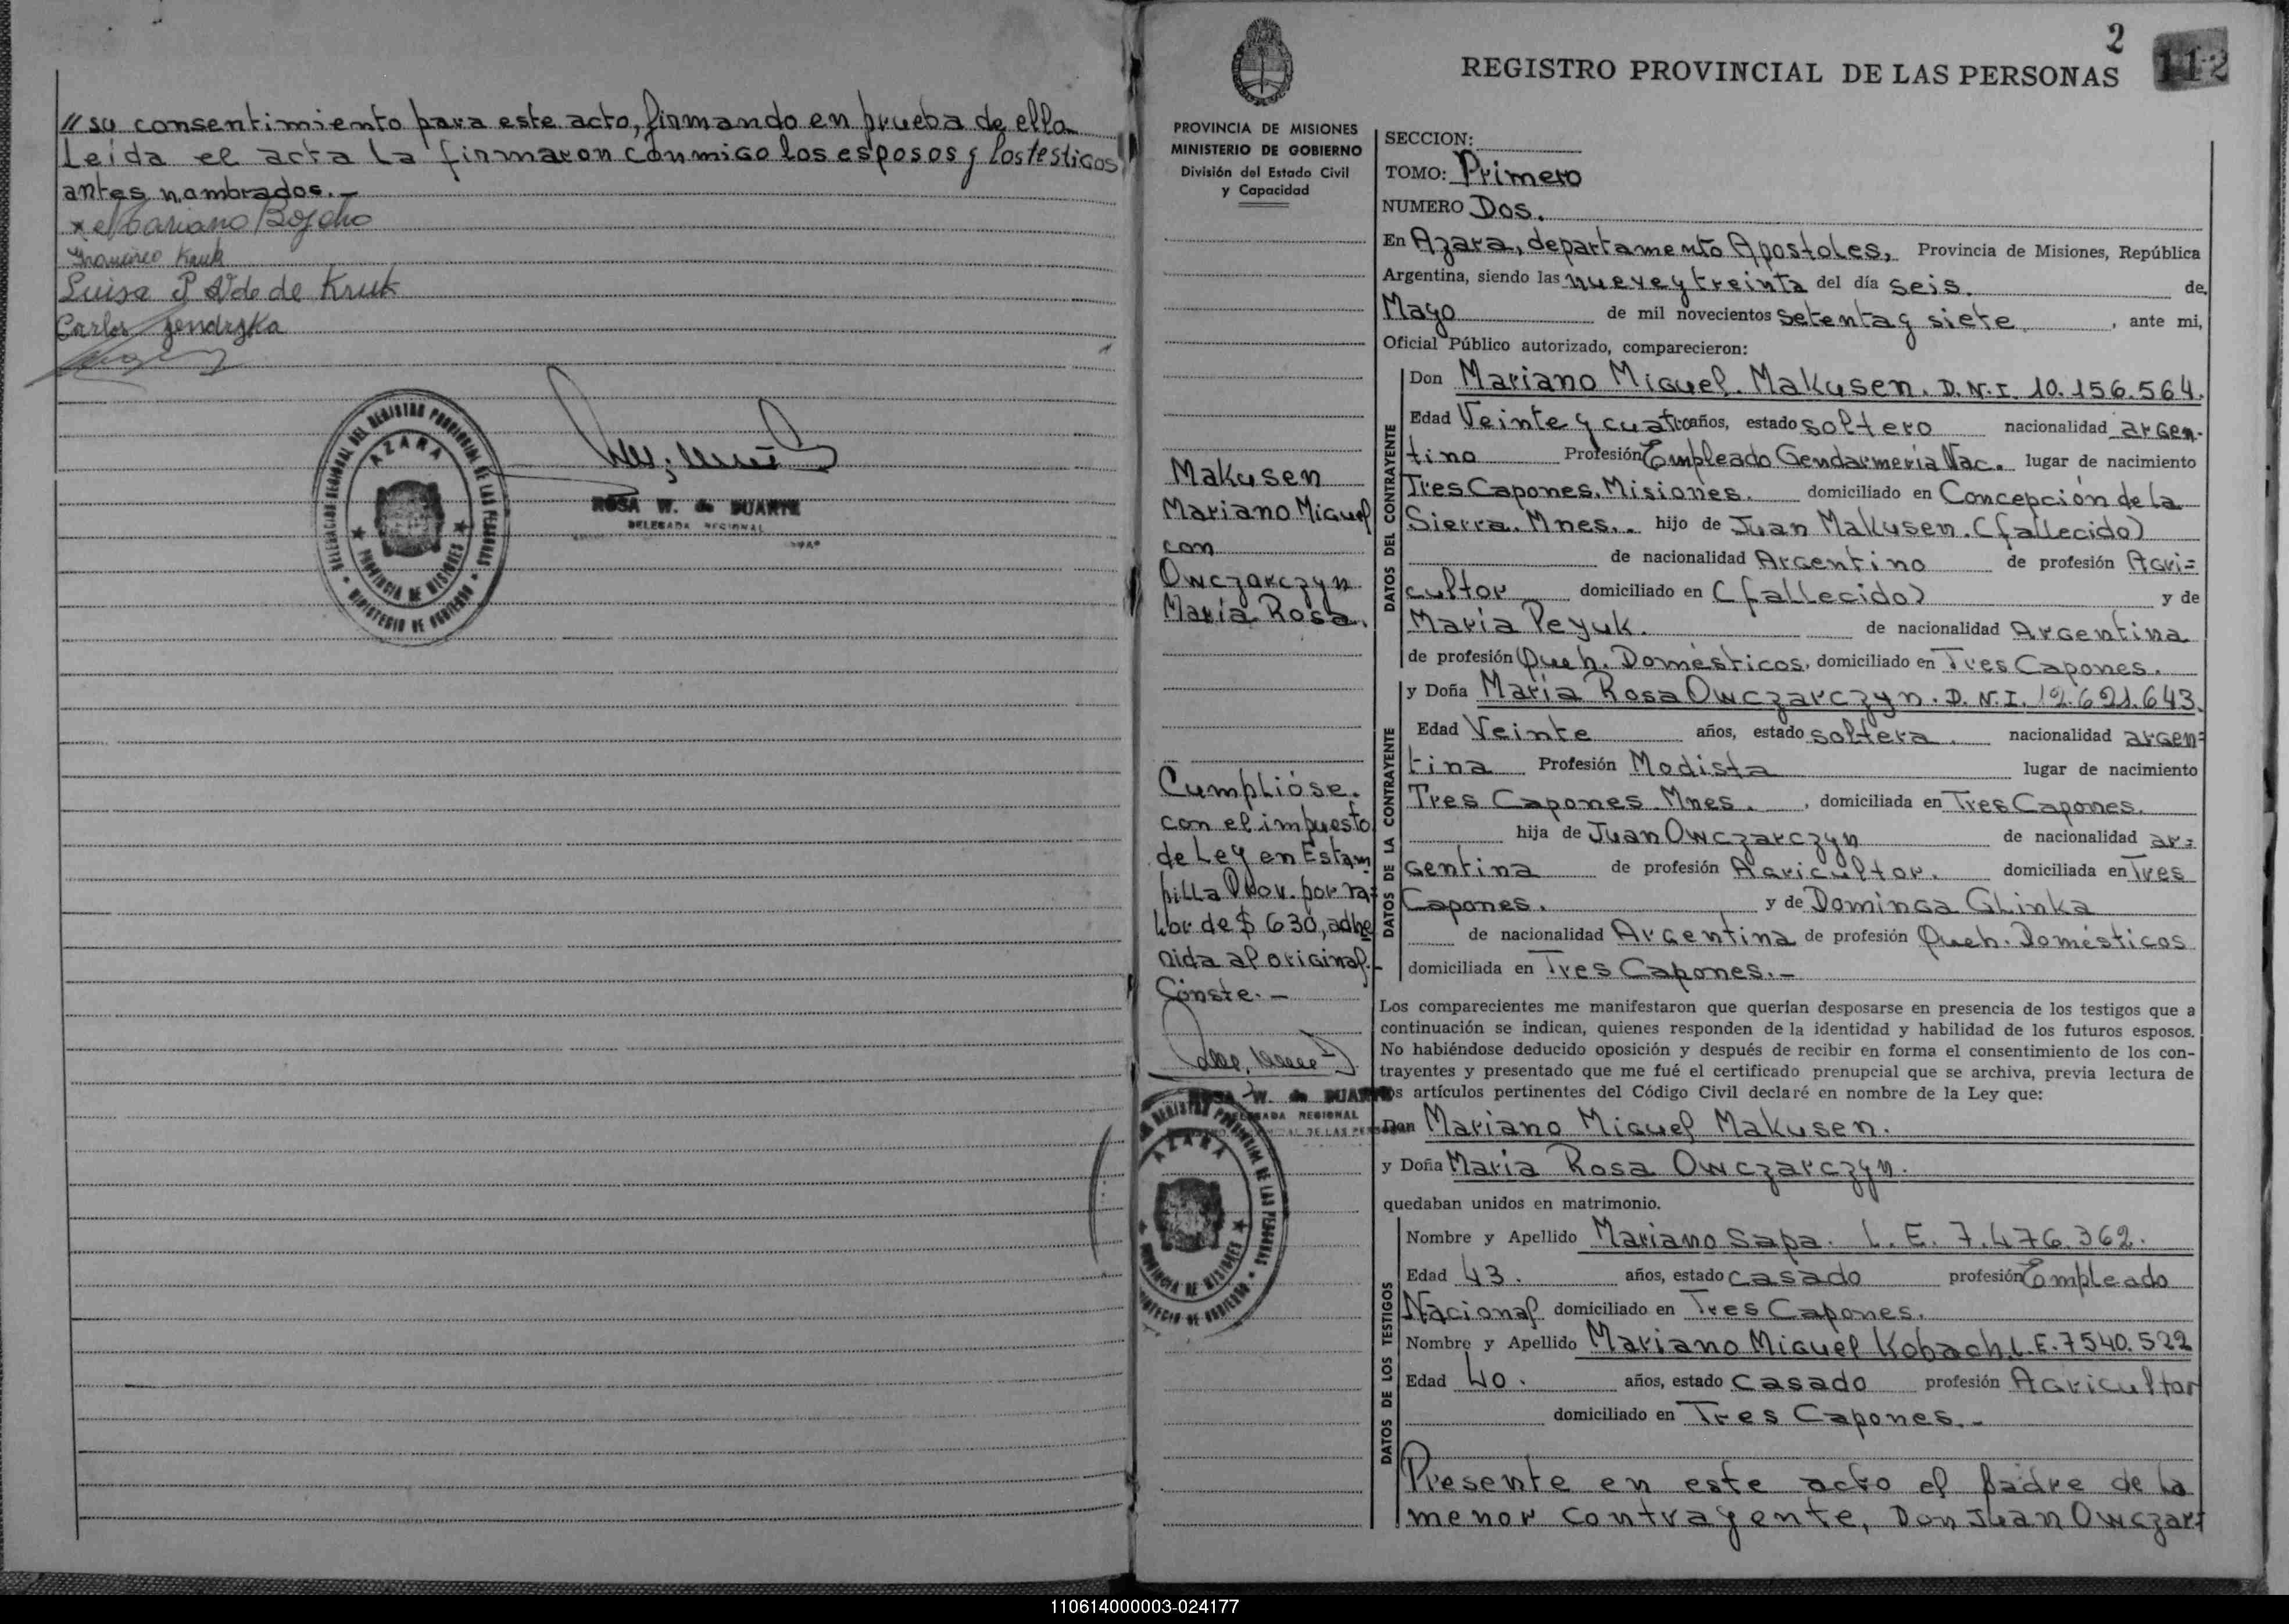 // su consentimiento para este acto, firmando en prueba de ello
Leída el acta la firmaron conmigo los esposos y los testigos
antes nombrados.-
Francisco Kruk
Luisa P Vda de Kruk
Carlos
DELEGACION REGIONAL DEL REGISTRO PROVINCIAL DE LAS PERSONAS
AZARA
PROVINCIA DE MISIONES
MINISTERIO DE GOBIERNO
ROSA W. de DUARTE
DELEGADA REGIONAL
2
112
REGISTRO PROVINCIAL DE LAS PERSONAS
PROVINCIA DE MISIONES
MINISTERIO DE GOBIERNO
División del Estado Civil
y Capacidad
Makusen
Mariano Miguel
con
Owczarczyn
María Rosa.
Cumplióse.
con el impuesto
de Ley en Estam
pilla Prov. por va=
lor de $ 630, adhe
rida al original.-
Cónste.-
ROSA W. de DUARTE
DELEGADA REGIONAL
AZARA
PROVINCIA DE MISIONES
MINISTERIO DE GOBIERNO
SECCION:
TOMO: Primero
NUMERO Dos.
En Azara, departamento Apostoles, Provincia de Misiones, República
Argentina, siendo las nueve y treinta del día seis. de
Mayo de mil novecientos setenta y siete, ante mi,
Oficial Público autorizado, comparecieron:
DATOS DEL CONTRAYENTE
Don Mariano Miguel. Makusen. D.N.I. 10.156.564.
Edad Veinte y cuatro años, estado soltero nacionalidad argen-
tino Profesión Empleado Gendarmería Nac. lugar de nacimiento
Tres Capones. Misiones. domiciliado en Concepción de la
Sierra. Mnes.. hijo de Juan Makusen. (fallecido)
de nacionalidad Argentino de profesión Agri=
cultor domiciliado en (fallecido) y de
María Peyuk. de nacionalidad Argentina
de profesión Queh. Domésticos, domiciliado en Tres Capones.
DATOS DE LA CONTRAYENTE
y Doña María Rosa Owczarczyn. D.N.I. 12.621.643.
Edad Veinte años, estado soltera. nacionalidad argen=
tina Profesión Modista lugar de nacimiento
Tres Capones Mnes. , domiciliada en Tres Capones.
hija de Juan Owczarczyn de nacionalidad ar=
gentina de profesión Agricultor. domiciliada en Tres
Capones. y de Dominga Glinka
de nacionalidad Argentina de profesión Queh. Domésticos
domiciliada en Tres Capones.-
Los comparecientes me manifestaron que querían desposarse en presencia de los testigos que a
continuación se indican, quienes responden de la identidad y habilidad de los futuros esposos.
No habiéndose deducido oposición y después de recibir en forma el consentimiento de los con-
trayentes y presentado que me fué el certificado prenupcial que se archiva, previa lectura de
los artículos pertinentes del Código Civil declaré en nombre de la Ley que:
Don Mariano Miguel Makusen.
y Doña María Rosa Owczarczyn.
quedaban unidos en matrimonio.
DATOS DE LOS TESTIGOS
Nombre y Apellido Mariano Sapa. L.E. 7.476.362.
Edad 43. años, estado casado profesión Empleado
Nacional domiciliado en Tres Capones.
Nombre y Apellido Mariano Miguel Kobach. L.E. 7540.522
Edad 40. años, estado casado profesión Agricultor
domiciliado en Tres Capones.-
Presente en este acto el padre de la
menor contrayente, Don Juan Owczar=
110614000003-024177